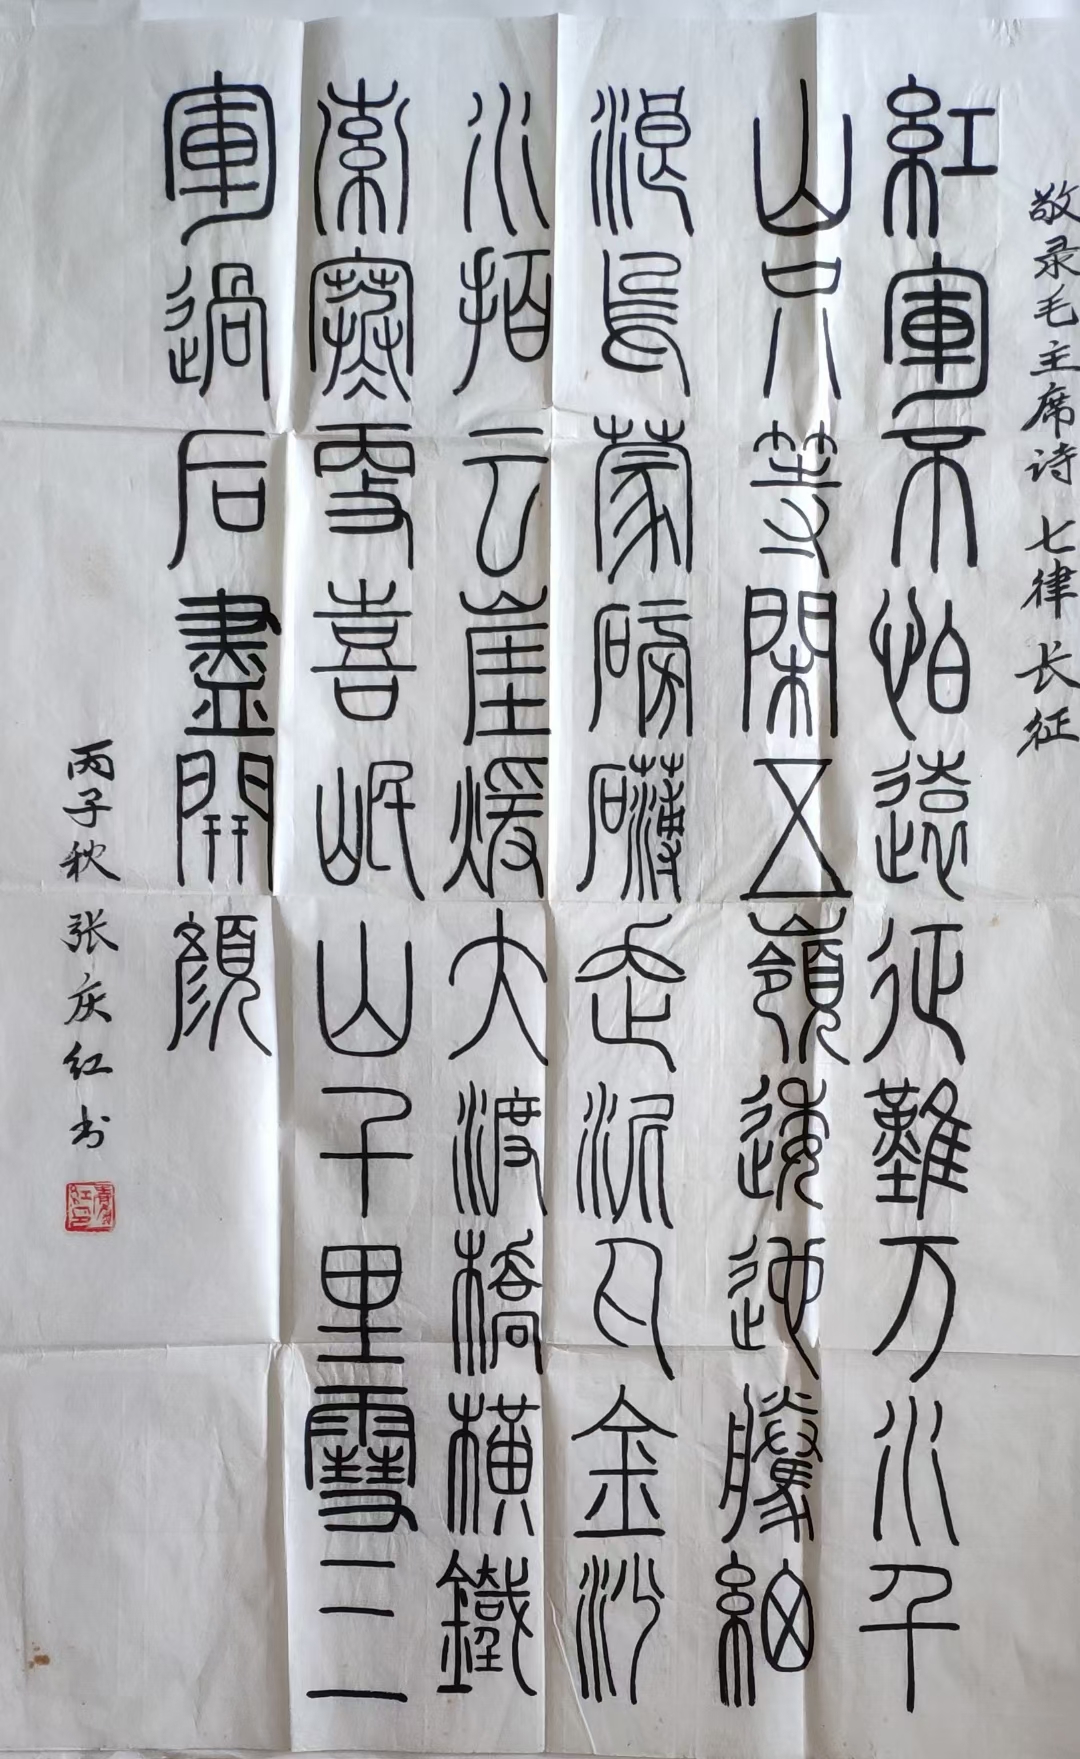 敬录毛主席诗 七律 长征
紅軍不怕遠征難万水千
山只等閑五嶺逶迤騰細
浪烏蒙磅礴走泥丸金沙
水拍云崖煖大渡橋橫鐵
索寒更喜岷山千里雪三
軍過后盡開顏
丙子秋 张庆红书